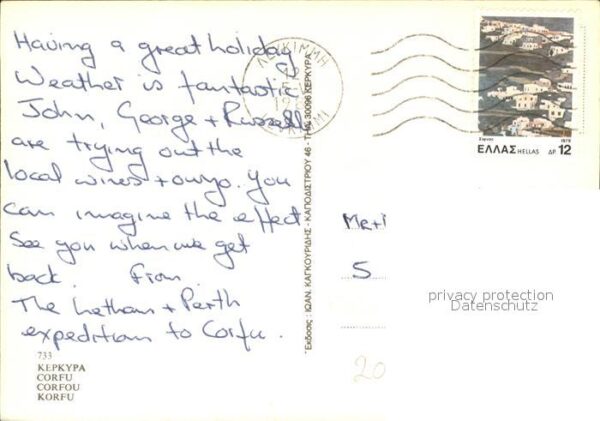 Having a great holiday
Weather is fantastic
John, George + Russell
are trying out the
local wines + ouzo. You
can imagine the effect.
See you when we get
back. From
The Letham + Perth
expedition to Corfu.
733
ΚΕΡΚΥΡΑ
CORFU
CORFOU
KORFU
Έκδοσις: ΙΩΑΝ. ΚΑΓΚΟΥΡΙΔΗΣ - ΚΑΠΟΔΙΣΤΡΙΟΥ 46 - Τηλ. 30096 ΚΕΡΚΥΡΑ
ΛΕΥΚΙΜΜΗ
ΕΛΛΑΣ HELLAS ΔΡ. 12
1979
S
20
privacy protection
Datenschutz